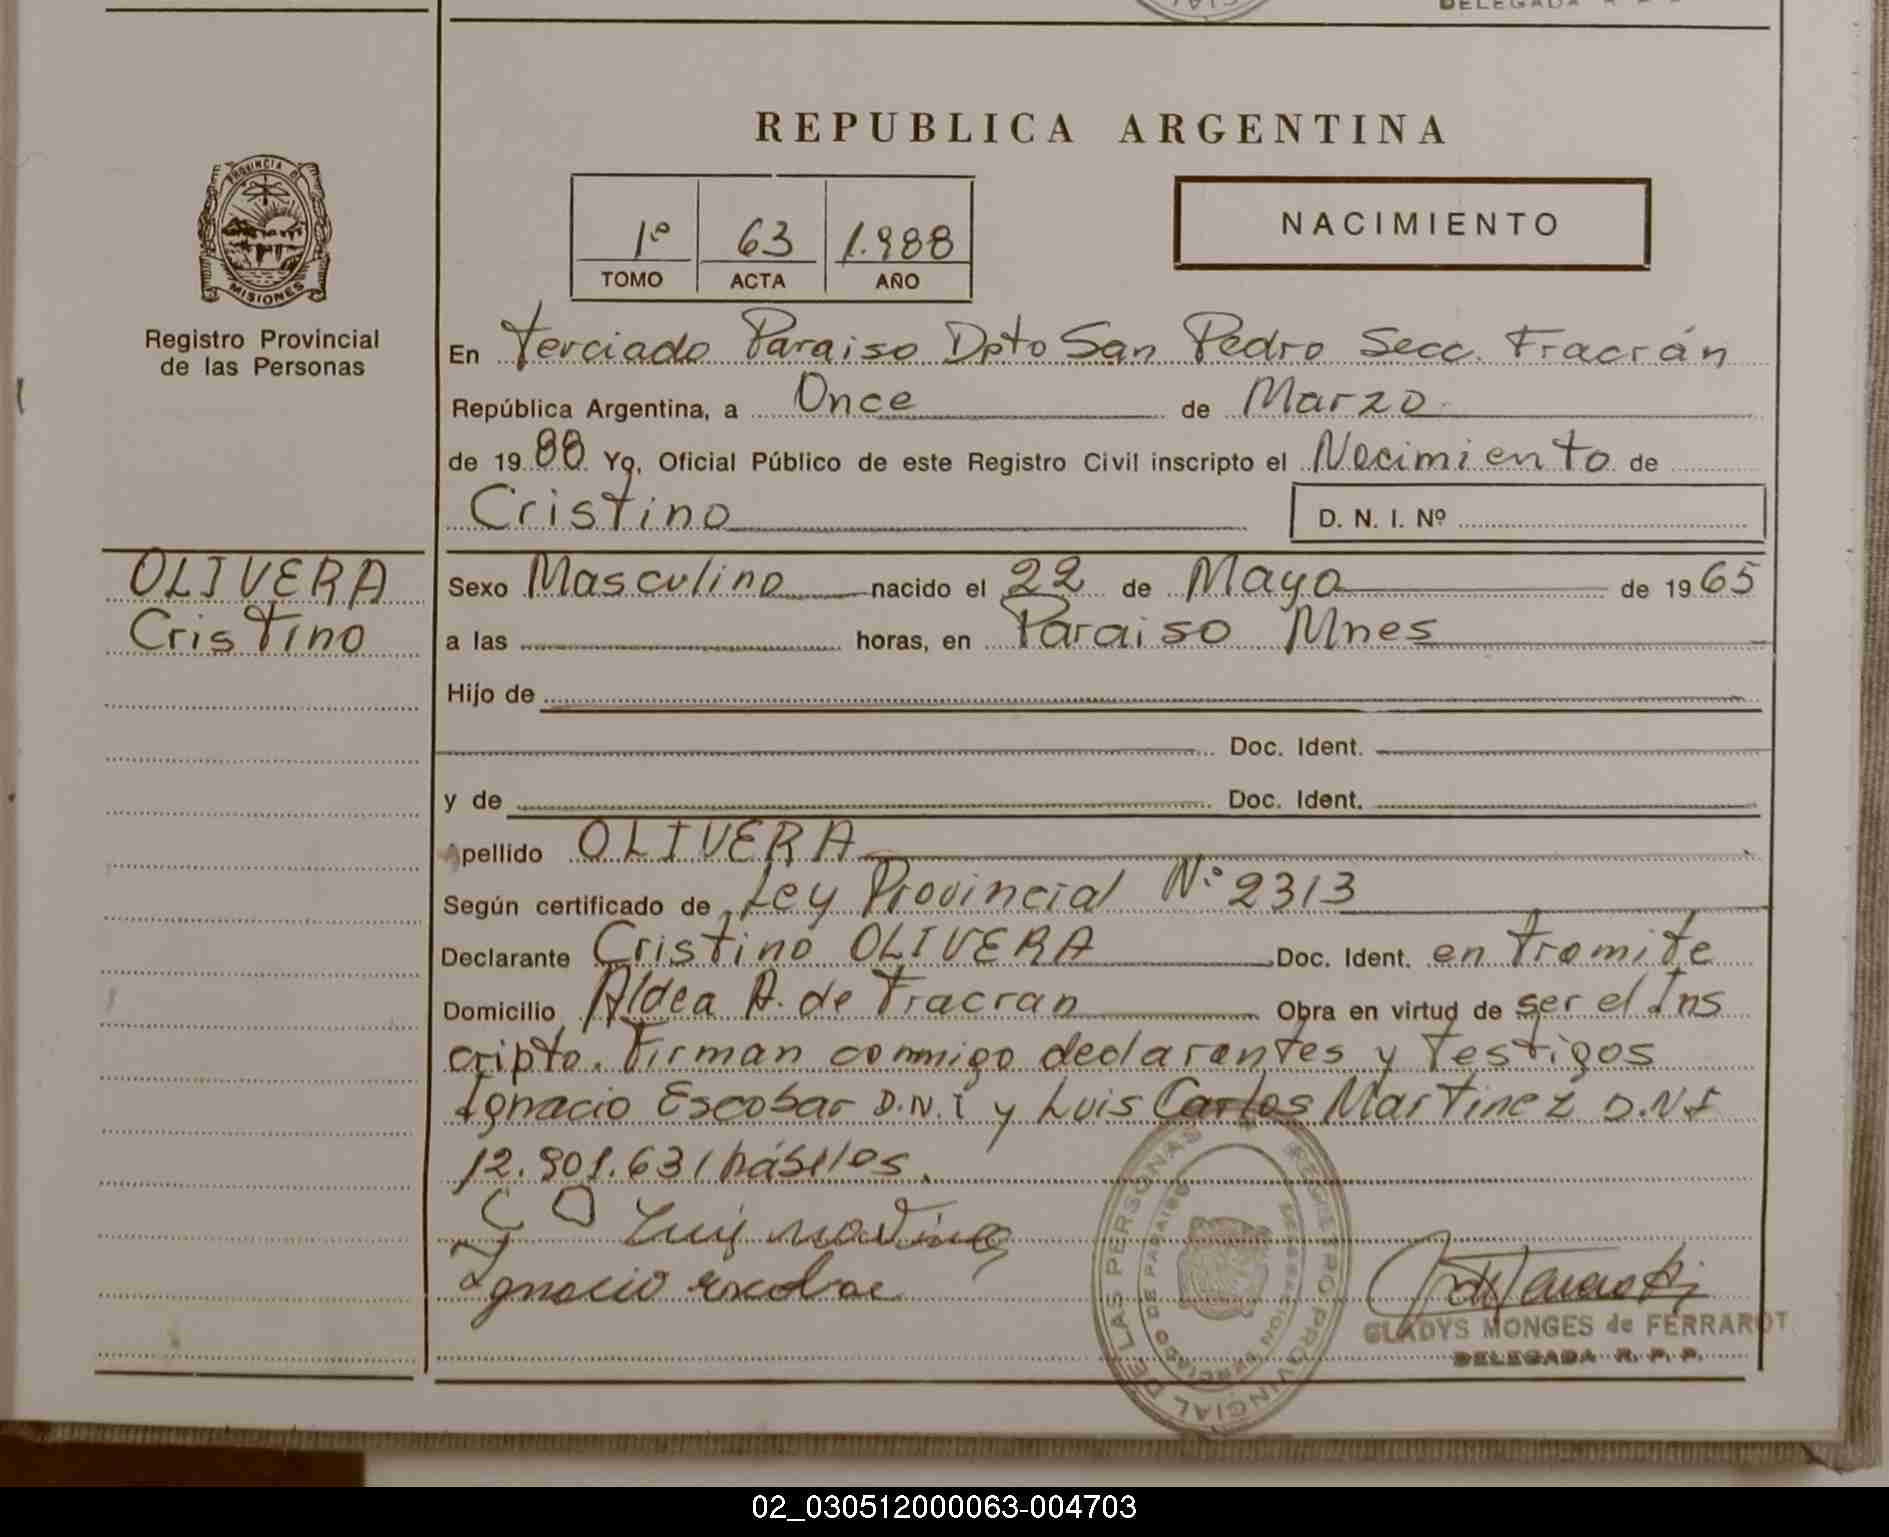 DELEGADA R. P. P.
REPUBLICA ARGENTINA
PROVINCIA DE
MISIONES
Registro Provincial
de las Personas
1º 63 1.988
TOMO ACTA AÑO
NACIMIENTO
En Terciado Paraiso Dpto San Pedro Secc. Fracrán
República Argentina, a Once de Marzo
de 19 88 Yo, Oficial Público de este Registro Civil inscripto el Nacimiento de
Cristino D. N. I. Nº
OLIVERA
Cristino
Sexo Masculino nacido el 22 de Mayo de 19 65
a las horas, en Paraiso Mnes
Hijo de
Doc. Ident.
y de Doc. Ident.
Apellido OLIVERA
Según certificado de Ley Provincial Nº 2313
Declarante Cristino OLIVERA Doc. Ident. en tramite
Domicilio Aldea A. de Fracran Obra en virtud de ser el Ins
cripto. Firman conmigo declarantes y testigos
Ignacio Escobar D.N.I y Luis Carlos Martinez D.N.I
12.901.631 hábiles.
C O Luis Martinez
Ignacio escobar
REGISTRO PROVINCIAL DE LAS PERSONAS
DELEGACION TERCIADO DE PARAISO
GLADYS MONGES de FERRAROT
DELEGADA R. P. P.
02_030512000063-004703